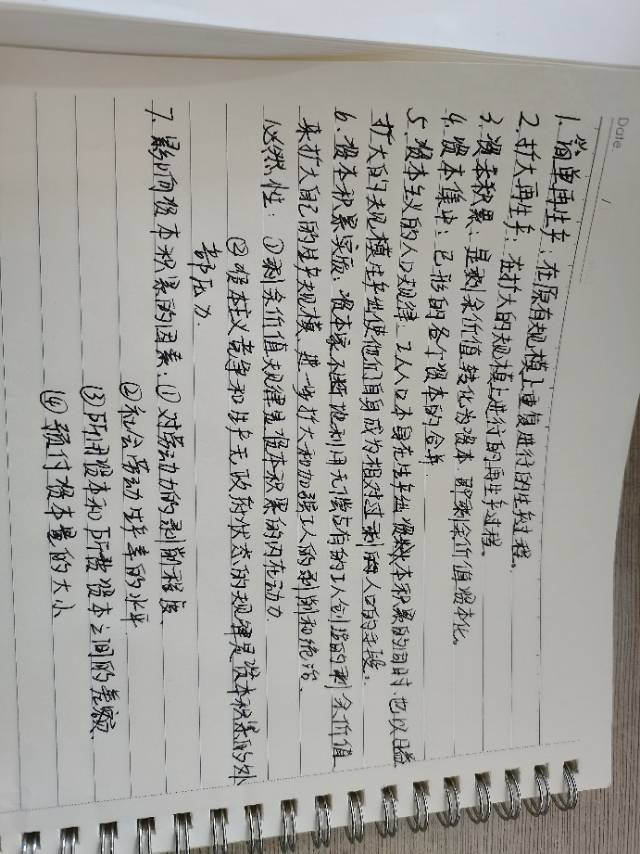 Date
1. 简单再生产：在原有规模上重复进行的生产过程。
2. 扩大再生产：在扩大的规模上进行的再生产过程。
3. 资本积累：是剩余价值转化为资本 即剩余价值资本化。
4. 资本集中：已形的各个资本的合并
5. 资本主义的人口规律：工人人口本身在生产出资料本积累的同时，也以日益
扩大的规模生产出使他们自身成为相对过剩人口的手段。
6. 资本积累实质：资本家不断地利用无偿占有的工人创造的剩余价值
来扩大自己的生产规模，进一步扩大和加强工人的剥削和统治。
必然性：①剩余价值规律是资本积累的内在动力
②资本主义竞争和生产无政府状态的规律是资本积累的外
部压力.
7. 影响资本积累的因素：①对劳动力的剥削程度
②社会劳动生产率的水平
③所用资本和所费资本之间的差额
④预付资本量的大小